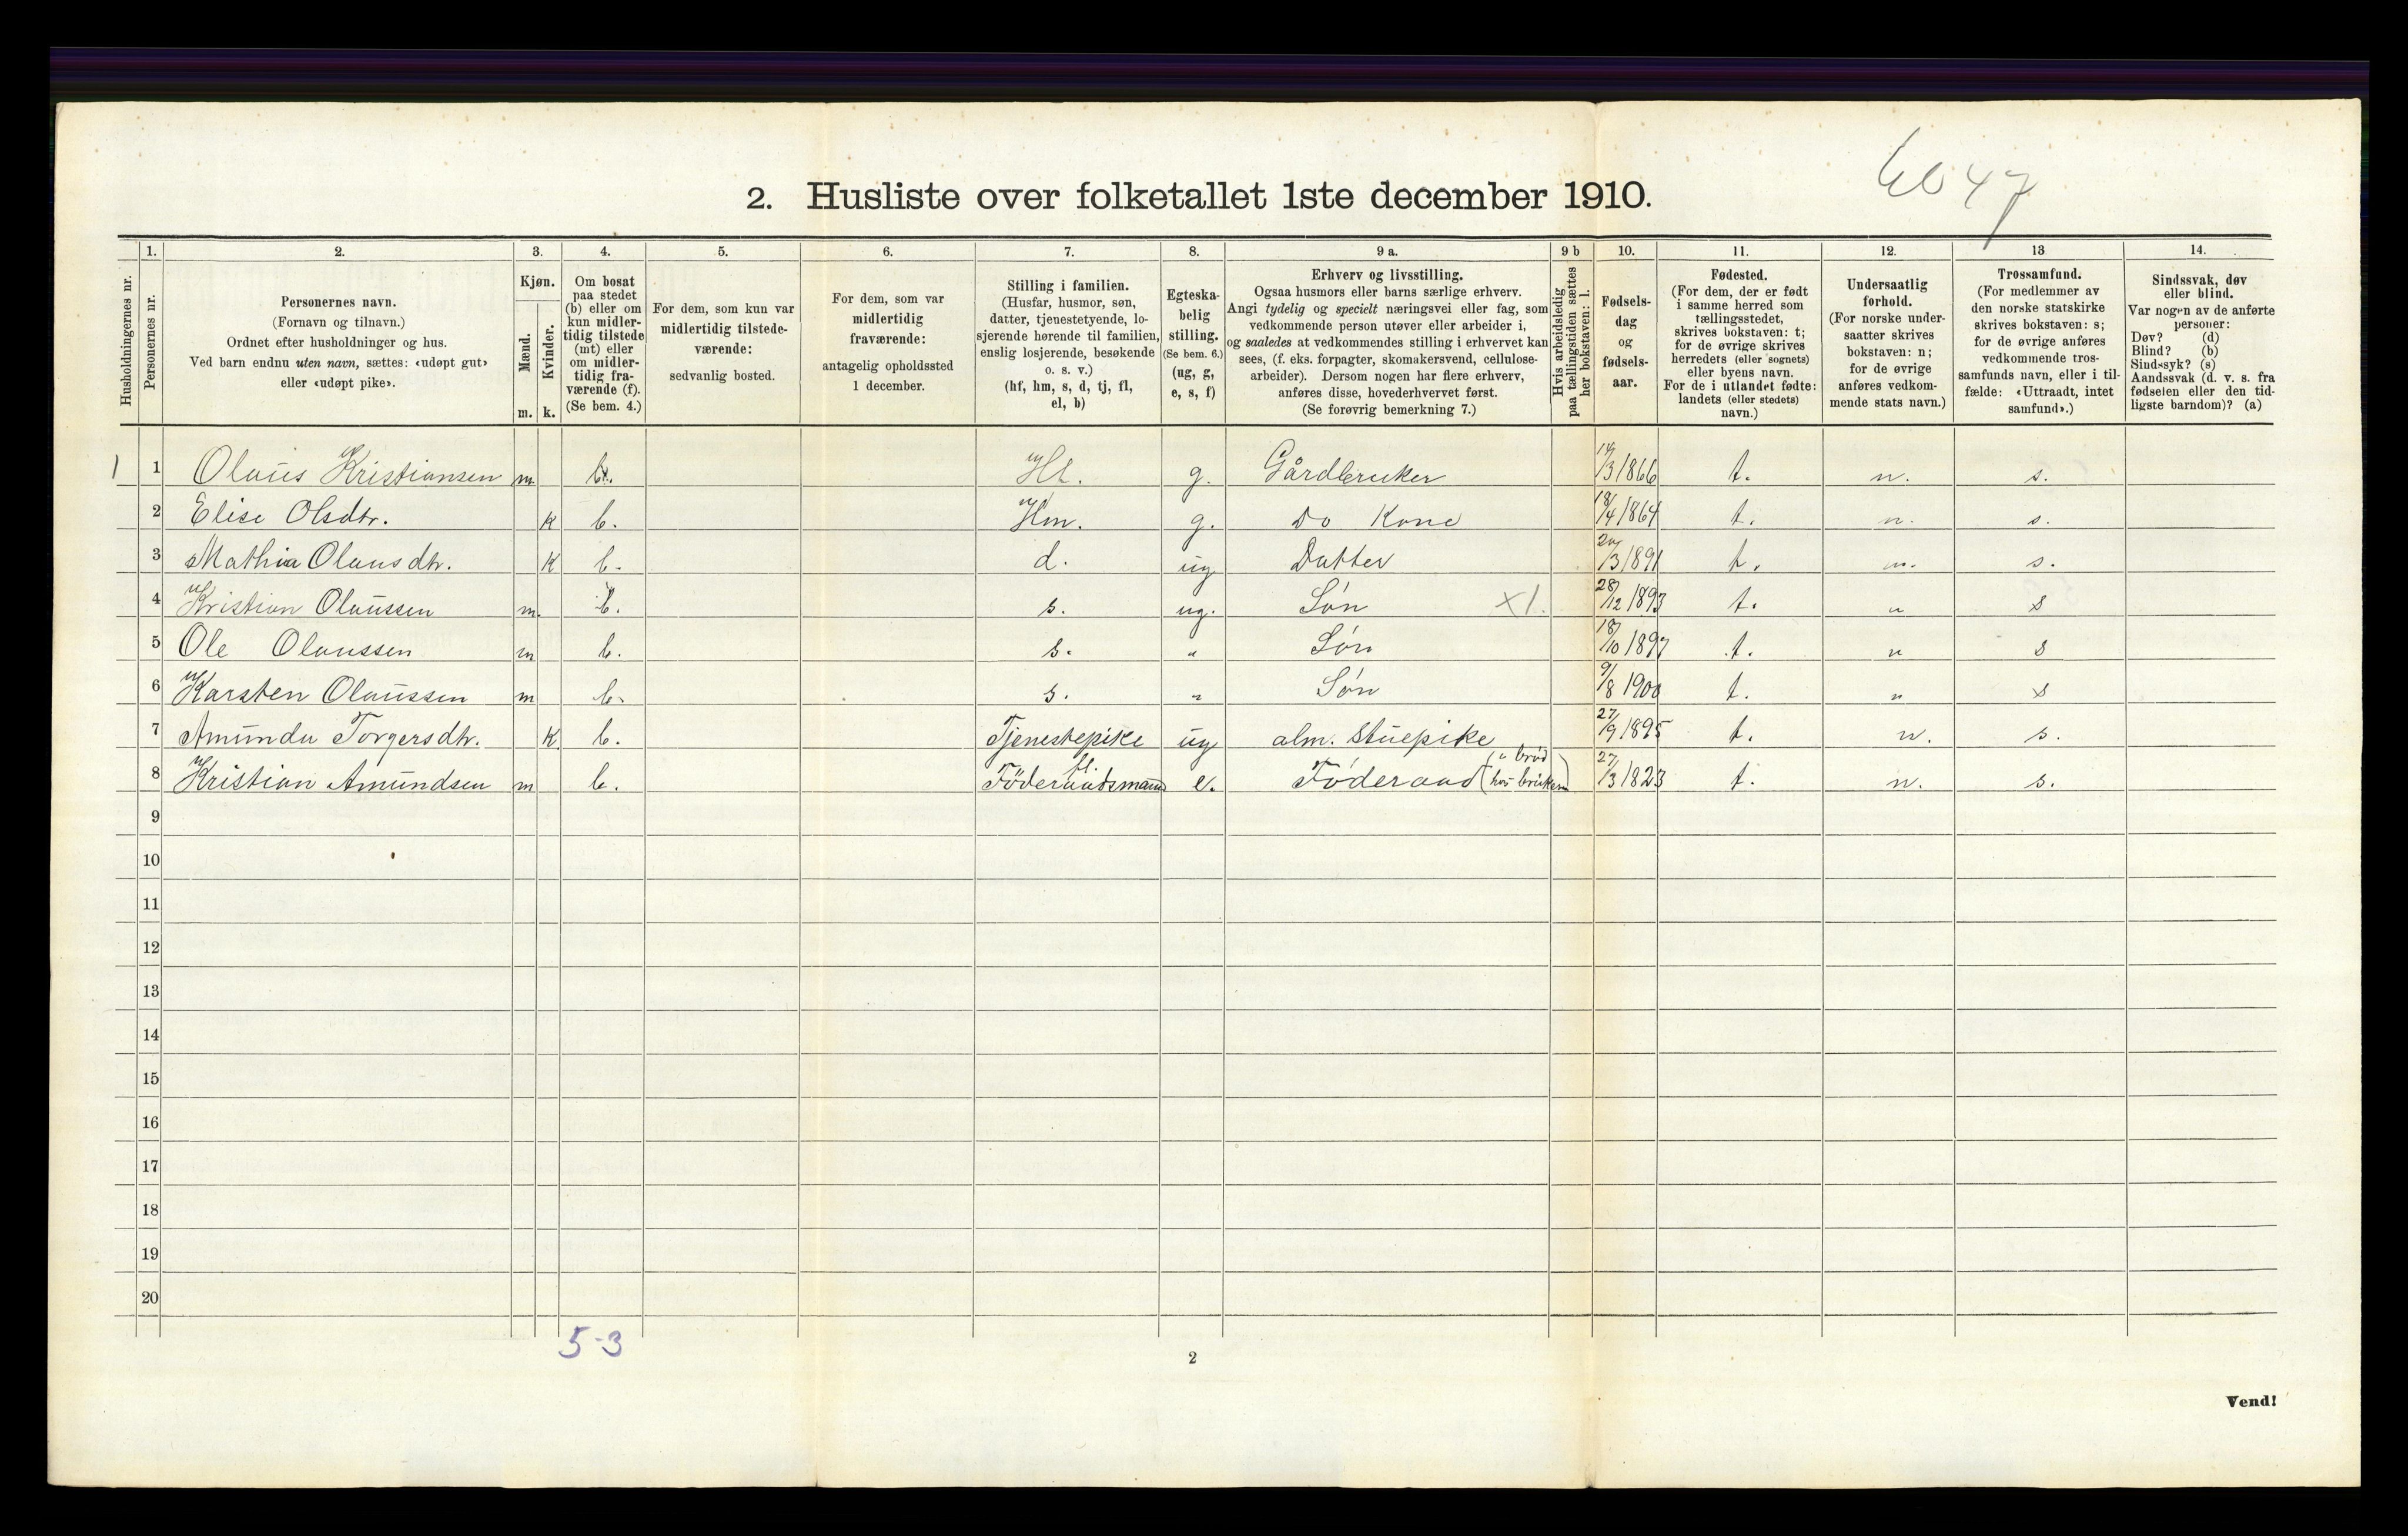 6047
2. Husliste over folketallet 1ste december 1910.
Husholdningernes nr.
1. Personernes nr.
2. Personernes navn.
(Fornavn og tilnavn.)
Ordnet efter husholdninger og hus.
Ved barn endnu uten navn, sættes: «udøpt gut»
eller «udøpt pike».
3. Kjøn.
Mænd. m.
Kvinder. k.
4. Om bosat
paa stedet
(b) eller om
kun midler-
tidig tilstede
(mt) eller
om midler-
tidig fra-
værende (f).
(Se bem. 4.)
5. For dem, som kun var
midlertidig tilstede-
værende:
sedvanlig bosted.
6. For dem, som var
midlertidig
fraværende:
antagelig opholdssted
1 december.
7. Stilling i familien.
(Husfar, husmor, søn,
datter, tjenestetyende, lo-
sjerende hørende til familien,
enslig losjerende, besøkende
o. s. v.)
(hf, hm, s, d, tj, fl,
el, b)
8. Egteska-
belig
stilling.
(Se bem. 6.)
(ug, g,
e, s, f)
9 a. Erhverv og livsstilling.
Ogsaa husmors eller barns særlige erhverv.
Angi tydelig og specielt næringsvei eller fag, som
vedkommende person utøver eller arbeider i,
og saaledes at vedkommendes stilling i erhvervet kan
sees, (f. eks. forpagter, skomakersvend, cellulose-
arbeider). Dersom nogen har flere erhverv,
anføres disse, hovederhvervet først.
(Se forøvrig bemerkning 7.)
9 b Hvis arbeidsledig
paa tællingstiden sættes
her bokstaven: l.
10. Fødsels-
dag
og
fødsels-
aar.
11. Fødested.
(For dem, der er født
i samme herred som
tællingsstedet,
skrives bokstaven: t;
for de øvrige skrives
herredets (eller sognets)
eller byens navn.
For de i utlandet fødte:
landets (eller stedets)
navn.)
12. Undersaatlig
forhold.
(For norske under-
saatter skrives
bokstaven: n;
for de øvrige
anføres vedkom-
mende stats navn.)
13 Trossamfund.
(For medlemmer av
den norske statskirke
skrives bokstaven: s;
for de øvrige anføres
vedkommende tros-
samfunds navn, eller i til-
fælde: «Uttraadt, intet
samfund».)
14. Sindssvak, døv
eller blind.
Var nogen av de anførte
personer:
Døv? (d)
Blind? (b)
Sindssyk? (s)
Aandssvak (d. v. s. fra
fødselen eller den tid-
ligste barndom)? (a)
1 1 Olaus Kristiansen m. b. Hf. g. Gårdbruker 14/3 1866 t. n. s.
2 Elise Olsdtr. K b. Hm. g. Do Kone 18/4 1864 t. n. s.
3 Mathia Olausdtr. K b. d. ug Datter 20/3 1891 t. n. s.
4 Kristian Olaussen m. b. s. ug. Søn X1. 28/12 1893 t. n s
5 Ole Olaussen m b. s. " Søn 18/10 1897 t. n s
6 Karsten Olaussen m b. s. " Søn 9/8 1900 t. n s
7 Amunda Torgersdtr. K b. Tjenestepike ug alm. Stuepike 27/9 1895 t. n. s.
8 Kristian Amundsen m b. Föderaadsmand fl. e. Føderaad (hos brukeren) 27/3 1823 t. n. s.
9
10
11
12
13
14
15
16
17
18
19
20
5-3
2
Vend!